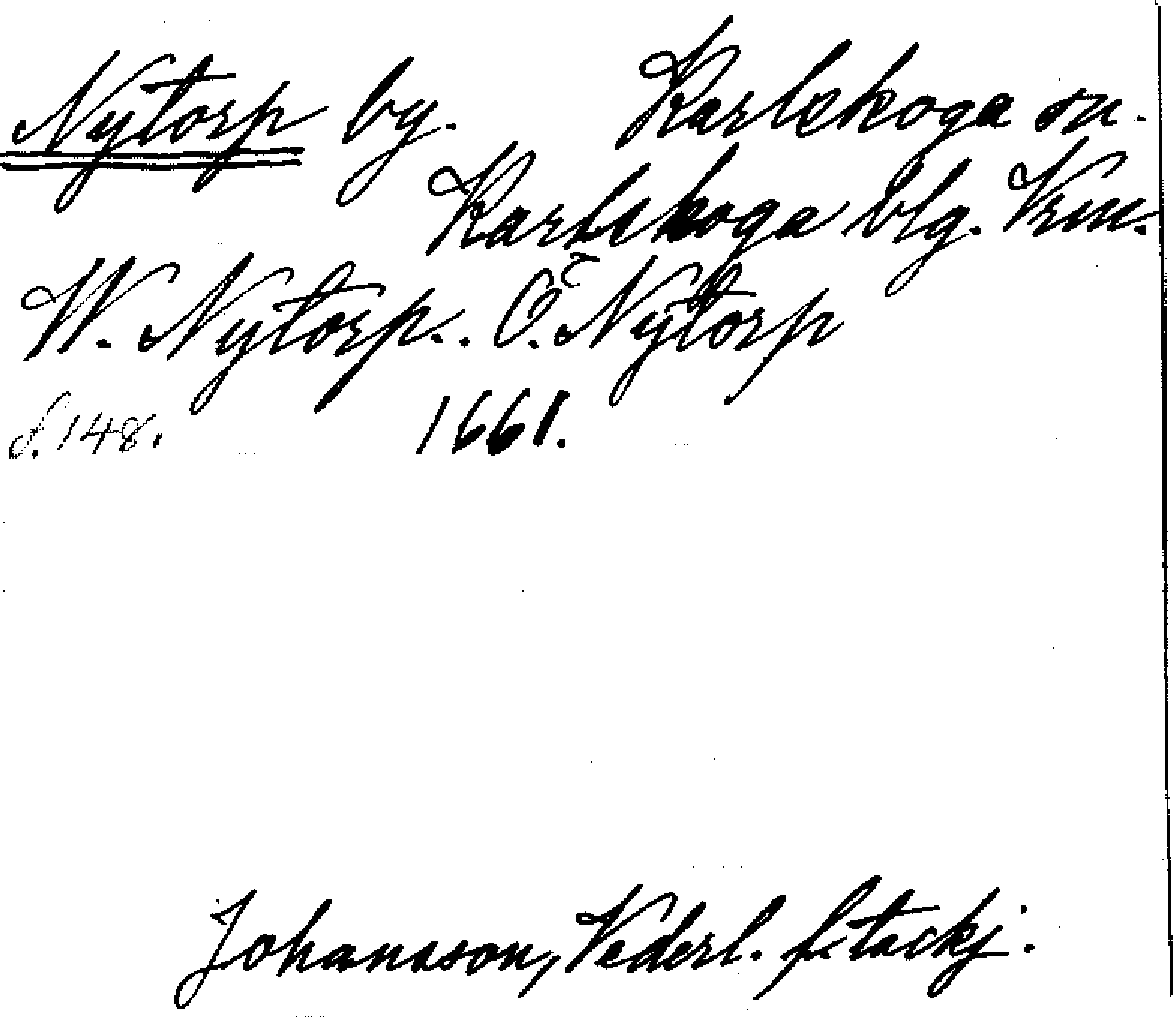 Nytorp by. Karlskoga sn.
Karlskoga blg. Vrm.
W. Nytorp. Ö. Nytorp
s. 148. 1661.
Johansson, Vederl. f. tackj.